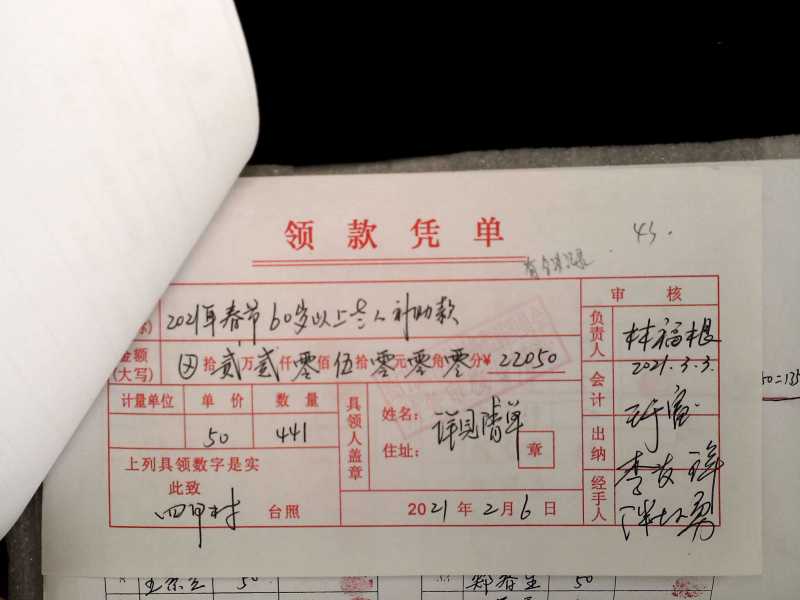 领款凭单
43.
2021年春节60岁以上老人补助款
金额
(大写) 拾贰万贰仟零佰伍拾零元零角零分¥ 22050
计量单位 单价 数量
50 441
上列具领数字是实
此致
四甲村 台照
具领人盖章
姓名: 详见清单
住址:
章
2021年2月6日
审核
负责人 林福根
2021.3.3.
会计
出纳
经手人
50=135
50 郑春生 50